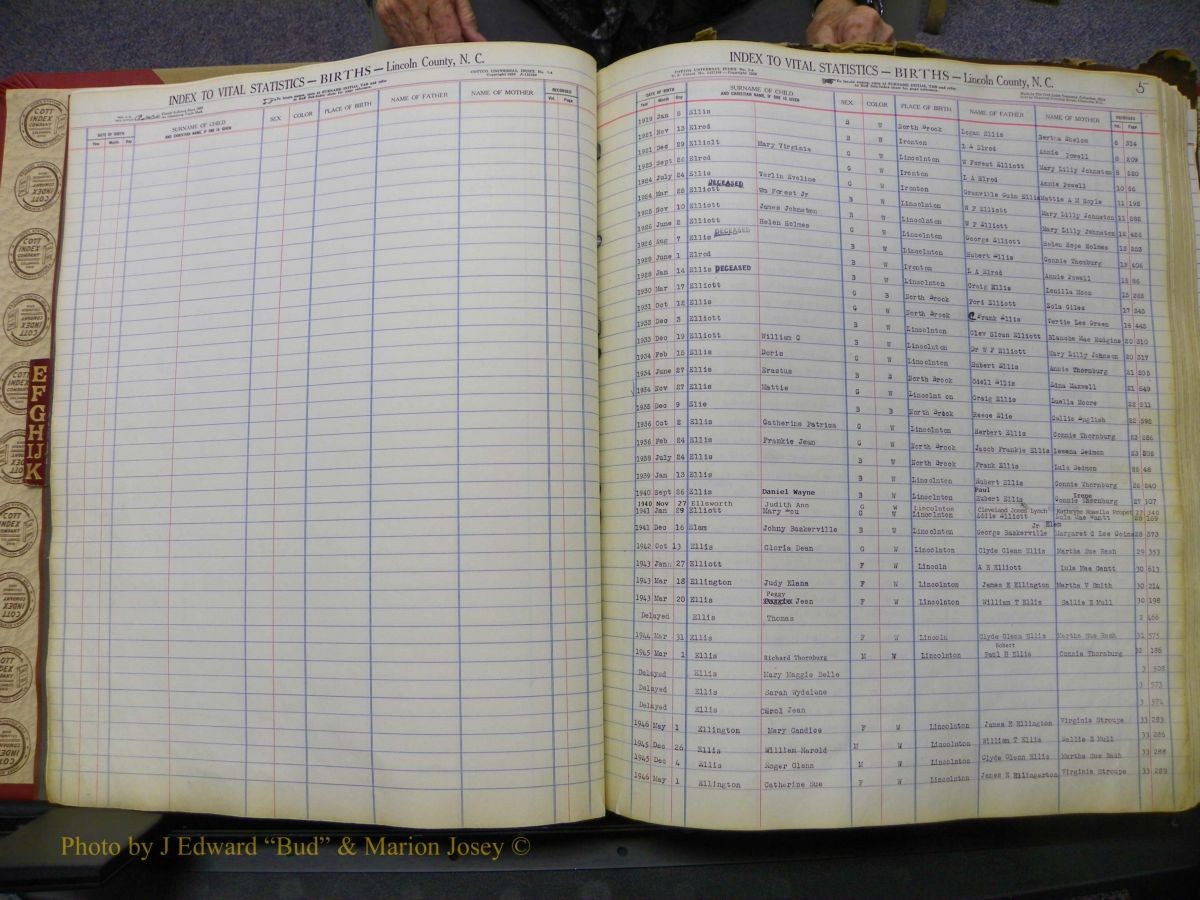 INDEX TO VITAL STATISTICS — BIRTHS — Lincoln County, N. C.
COTT INDEX COMPANY
DATE OF BIRTH
Year Month Day
SURNAME OF CHILD
AND CHRISTIAN NAME IF ONE IS GIVEN
SEX COLOR PLACE OF BIRTH NAME OF FATHER NAME OF MOTHER RECORDED
Vol. Page
E
F
G
H
I
J
K
INDEX TO VITAL STATISTICS — BIRTHS — Lincoln County, N. C.
5
DATE OF BIRTH
Year Month Day
SURNAME OF CHILD
AND CHRISTIAN NAME IF ONE IS GIVEN
SEX COLOR PLACE OF BIRTH NAME OF FATHER NAME OF MOTHER RECORDED
Vol. Page
1919 Jan Ellis B W North Brook Logan Ellis Bertha 6 314
1921 Nov 13 Elrod W Ironton L A Elrod Annie Powell 8 209
1921 Dec 29 Elliott Mary Virginia G W Lincolnton W Forest Elliott Mary Lilly Johnston 8 220
1923 Sept 26 Elrod G W Ironton L A Elrod Annie Powell 10 86
1924 July 24 Ellis Verlin Eveline G W Ironton Granville Guin Ellis Mattie A M Hoyle 11 192
Mar 28 Elliott DECEASED Wm Forest Jr B W Lincolnton W F Elliott Mary Lilly Johnston 11 282
Nov 10 Elliott James Johnston B W Lincolnton W F Elliott Mary Lilly Johnston 12 426
1926 June 2 Elliott Helen Holmes G W Lincolnton George Elliott Helen Hope Holmes 13 253
1926 Aug 7 Ellis DECEASED B W Lincolnton Hubert Ellis Connie Thornburg 13 406
June 1 Elrod B W Ironton L A Elrod Annie Powell 15 86
Jan 14 Ellis DECEASED B W Lincolnton Craig Ellis 15 265
1930 Mar 17 Elliott G B North Brook Fori Elliott Zola Giles 17 343
1931 Oct 12 Ellis G W North Brook C Frank Ellis Vertie Lee Green 18 445
1933 Dec 3 Elliott B W Lincolnton Clev Sloan Elliott Blanche Mae Hudgins 20 310
1933 Dec 19 Elliott William Q B W Lincolnton Dr W F Elliott Mary Lilly Johnson 20 317
1934 Feb 15 Ellis Doris G W Lincolnton Hubert Ellis Annie Thornburg 21 205
1934 June 27 Ellis Erastus B B North Brook Odell Ellis Edna Maxwell 21 549
1934 Nov 27 Ellis Mattie G W Lincolnton Craig Ellis Luella Moore 22 211
1935 Dec 9 Elie B B North Brook Reece Elie Callie English 22 592
1936 Oct 2 Ellis Catherine Patrica G W Lincolnton Herbert Ellis Connie Thornburg 23 286
Feb 24 Ellis Frankie Jean G W North Brook Jacob Frankie Ellis Lewena Dedmon 23 505
1938 July 24 Ellis B W North Brook Frank Ellis Lula Dedmon 25 48
1939 Jan 13 Ellis B W Lincolnton Hubert Ellis Connie Thornburg 26 240
1940 Sept 26 Ellis Daniel Wayne B W Lincolnton Paul Hubert Ellis Connie Irene Thornburg 27 307
1940 Nov 27 Ellsworth Judith Ann G W Lincolnton Cleveland Jones Lynch Kathryne Rosella Propst 27 340
1941 Jan 29 Elliott Mary Lou G W Lincolnton Addie Elliott Lula Mae Gantt 28 169
1941 Dec 16 Elam Johny Baskerville B W Lincolnton George Baskerville Jr Elam Margaret G Lee Goins 28 573
1942 Oct 13 Ellis Gloria Dean G W Lincolnton Clyde Glenn Ellis Martha Sue Rash 29 353
1943 Jan 27 Elliott F W Lincoln A E Elliott Lula Mae Gantt 30 613
1943 Mar 18 Ellington Judy Elana F W Lincolnton James E Ellington Martha V Smith 30 214
1943 Mar 20 Ellis Peggy Jean F W Lincolnton William T Ellis Sallie E Mull 30 198
Delayed Ellis Thomas 2 466
1944 Mar 31 Ellis F W Lincoln Clyde Glenn Ellis Martha Sue Rash 31 575
1945 Mar 1 Ellis Richard Thornburg M W Lincolnton Paul Hobert Ellis Connie Thornburg 32 186
Delayed Ellis Mary Maggie Belle 3 508
Delayed Ellis Sarah Wydelene 3 573
Delayed Ellis Carol Jean 3 574
1946 May 1 Ellington Mary Candice F W Lincolnton James E Ellington Virginia Stroupe 33 283
1945 Dec 26 Ellis William Harold M W Lincolnton William T Ellis Sallie E Mull 33 286
1945 Dec 4 Ellis Roger Glenn M W Lincolnton Clyde Glenn Ellis Martha Sue Rash 33 288
1946 May 1 Ellington Catherine Sue F W Lincolnton James E Ellington Virginia Stroupe 33 289
Photo by J Edward “Bud” & Marion Josey ©